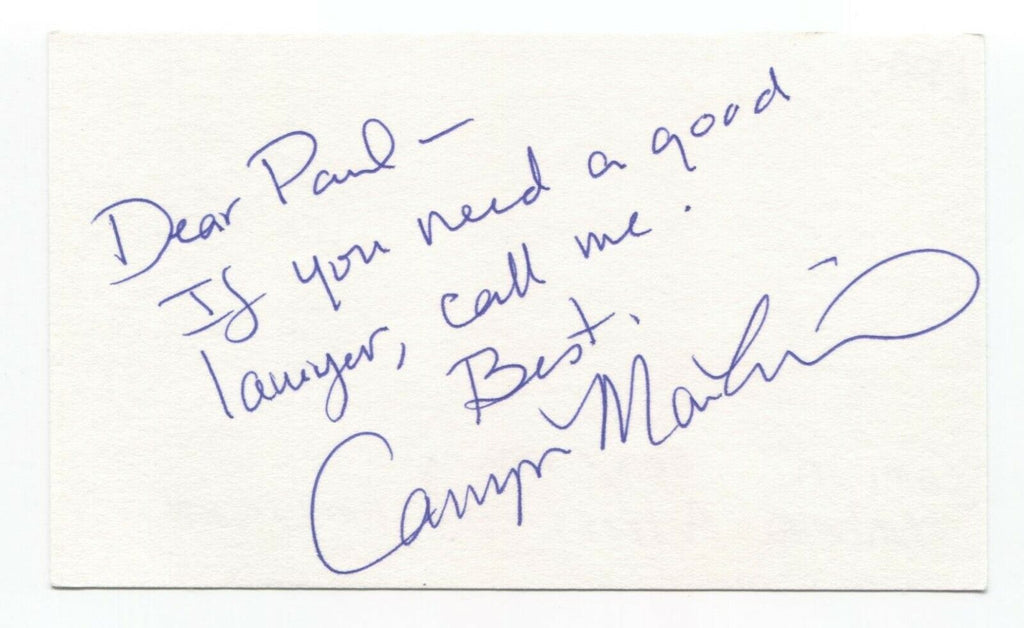 Dear Paul —
If you need a good
lawyer, call me.
Best,
Camryn Manheim